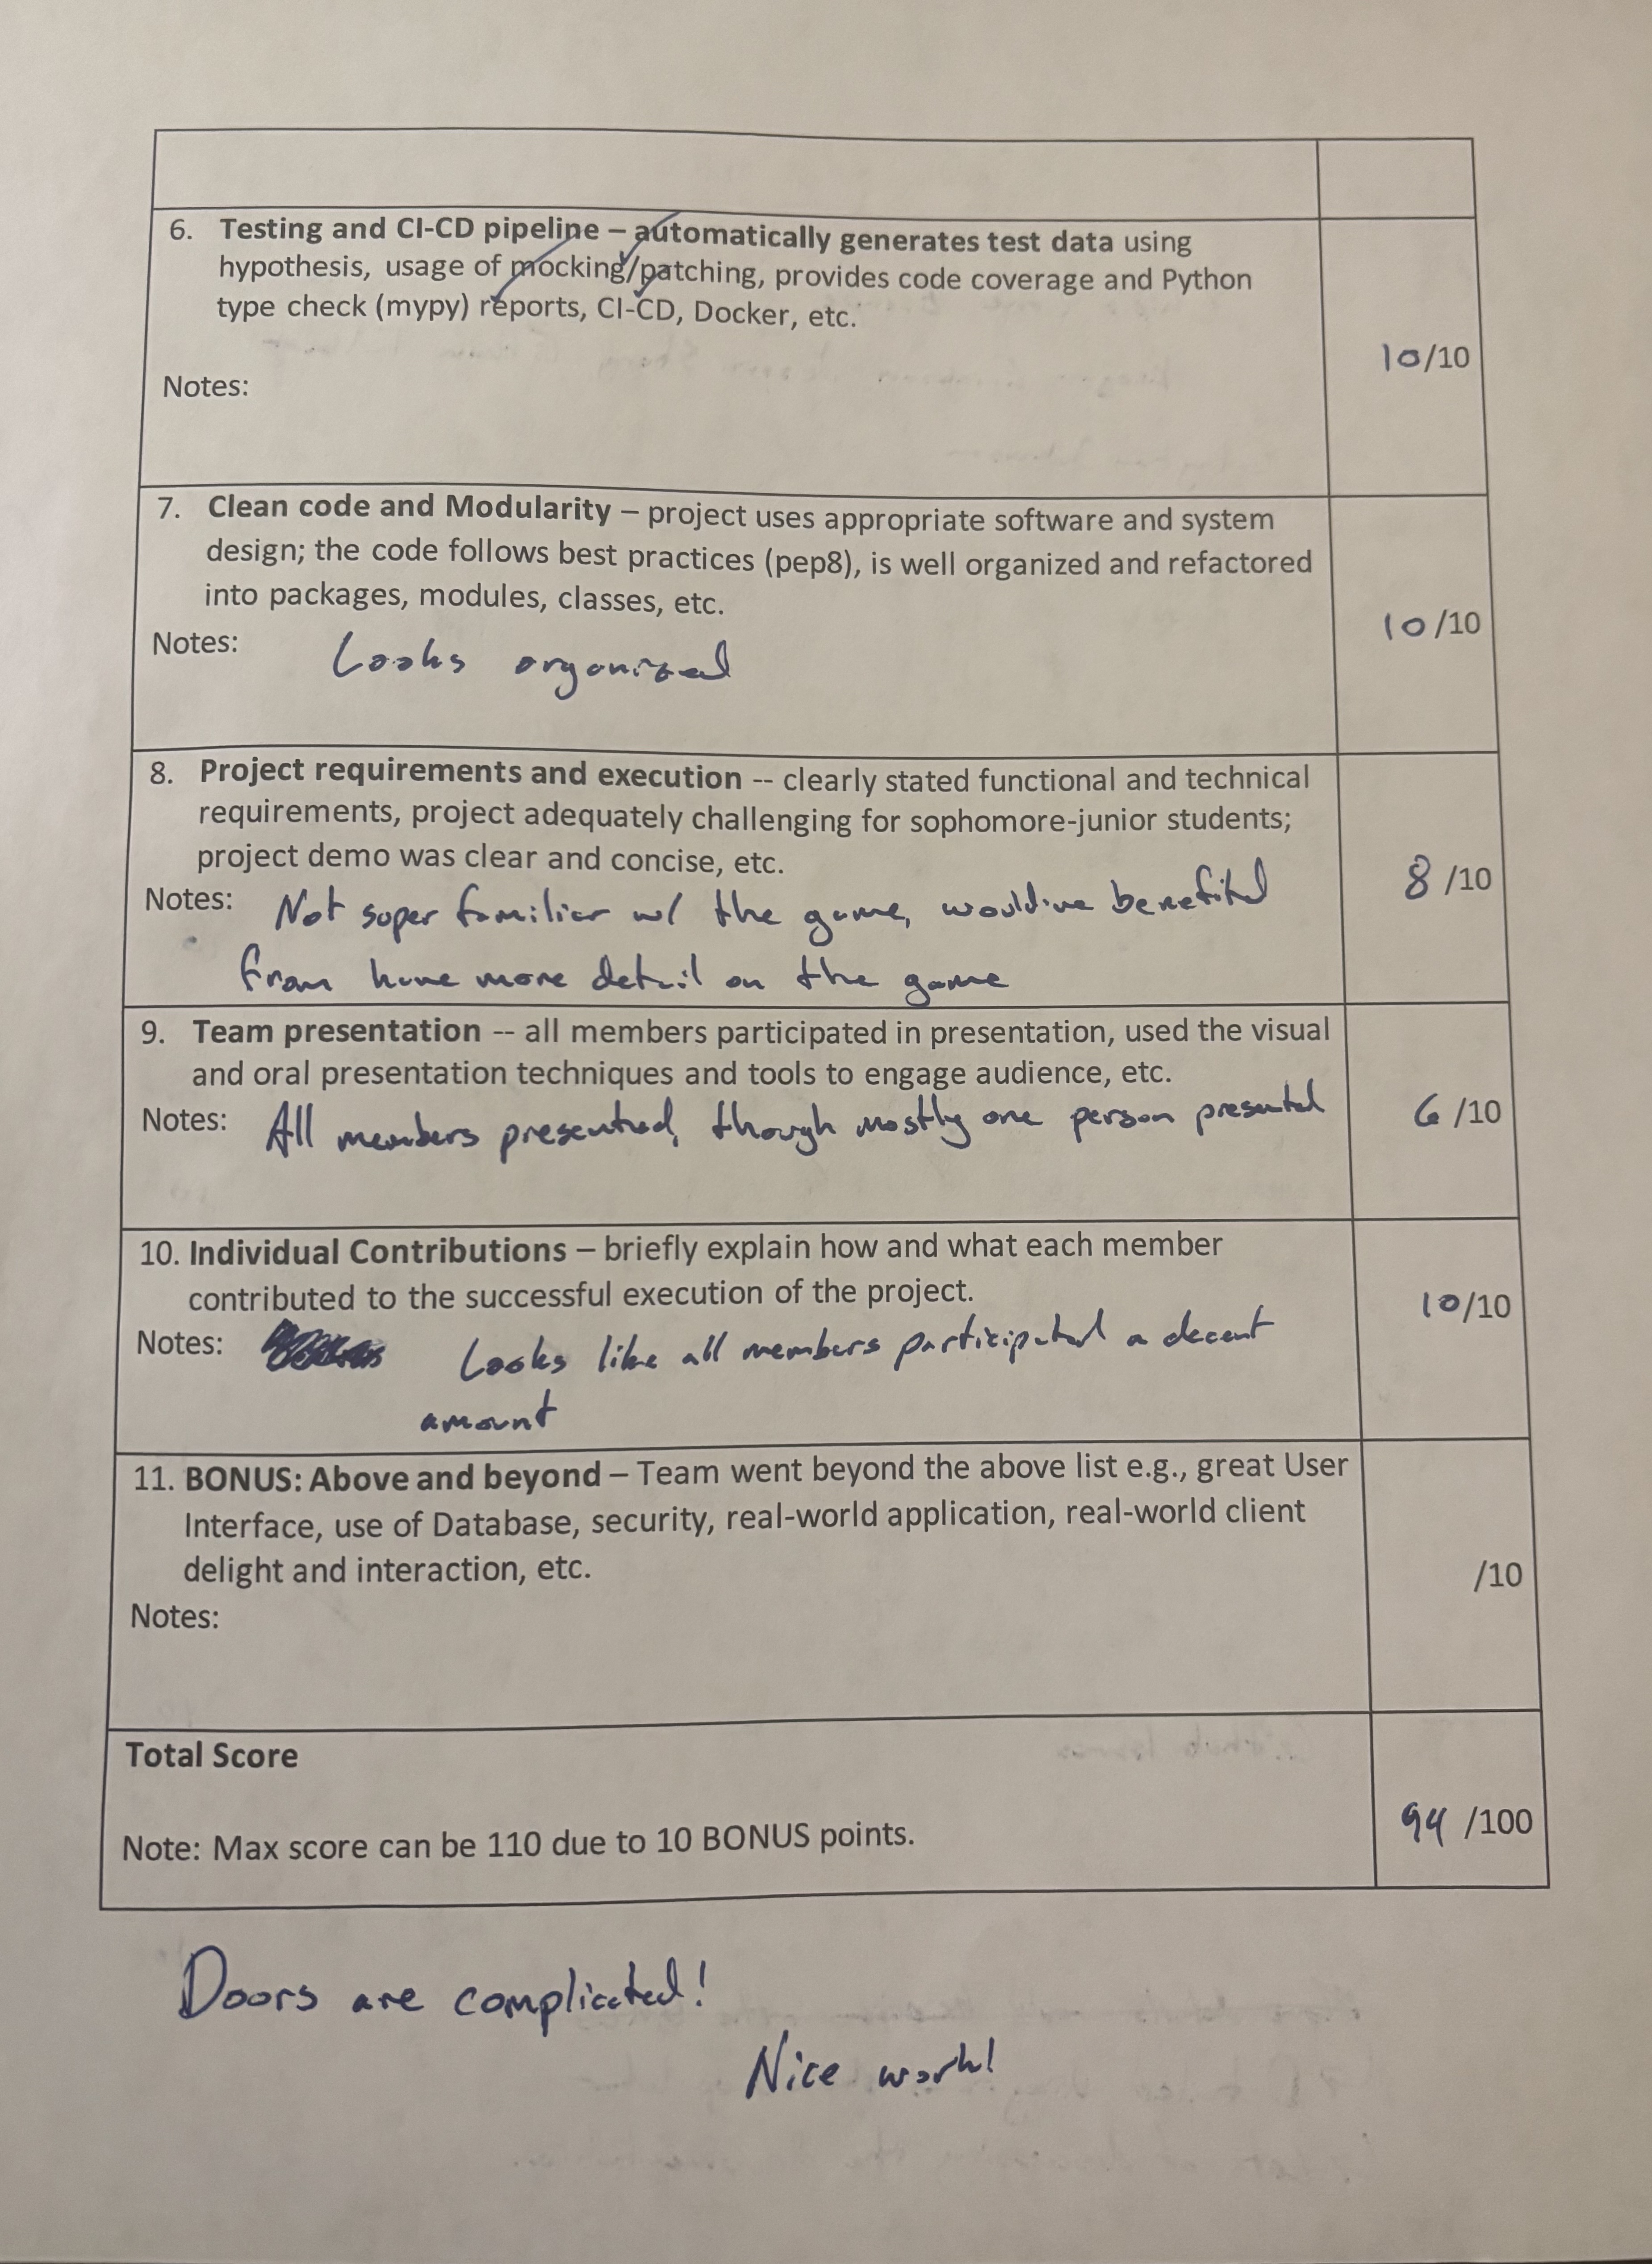 6. Testing and CI-CD pipeline – automatically generates test data using
hypothesis, usage of mocking/patching, provides code coverage and Python
type check (mypy) reports, CI-CD, Docker, etc.
10/10
Notes:
7. Clean code and Modularity – project uses appropriate software and system
design; the code follows best practices (pep8), is well organized and refactored
into packages, modules, classes, etc.
10/10
Notes: Looks organized
8. Project requirements and execution -- clearly stated functional and technical
requirements, project adequately challenging for sophomore-junior students;
project demo was clear and concise, etc.
8/10
Notes: Not super familiar w/ the game, would've benefited
from have more detail on the game
9. Team presentation -- all members participated in presentation, used the visual
and oral presentation techniques and tools to engage audience, etc.
6/10
Notes: All members presented, though mostly one person presented
10. Individual Contributions – briefly explain how and what each member
contributed to the successful execution of the project.
10/10
Notes: Looks like all members participated a decent
amount
11. BONUS: Above and beyond – Team went beyond the above list e.g., great User
Interface, use of Database, security, real-world application, real-world client
delight and interaction, etc.
/10
Notes:
Total Score
94/100
Note: Max score can be 110 due to 10 BONUS points.
Doors are complicated!
Nice work!